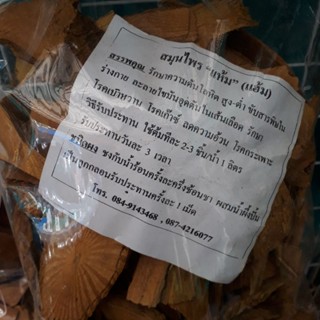 สมุนไพร "แฮ้ม" (แฮ้ม)
สรรพคุณ รักษาความดันโลหิต สูง-ต่ำ ขับสารพิษใน
ร่างกาย ละลายไขมันอุดตันในเส้นเลือด รักษา
โรคเบาหวาน โรคเก๊าซ์ ลดความอ้วน โรคกระเพาะ
วิธีรับประทาน ใช้ต้มทีละ 2-3 ชิ้น/น้ำ 1 ลิตร
รับประทานวันละ 3 เวลา
ชนิดผง ชงกับน้ำร้อนครั้งละครึ่งช้อนชา ผสมน้ำผึ้งปั้น
เป็นลูกกลอนรับประทานครั้งละ 1 เม็ด
โทร. 084-9143468 , 087-4216077